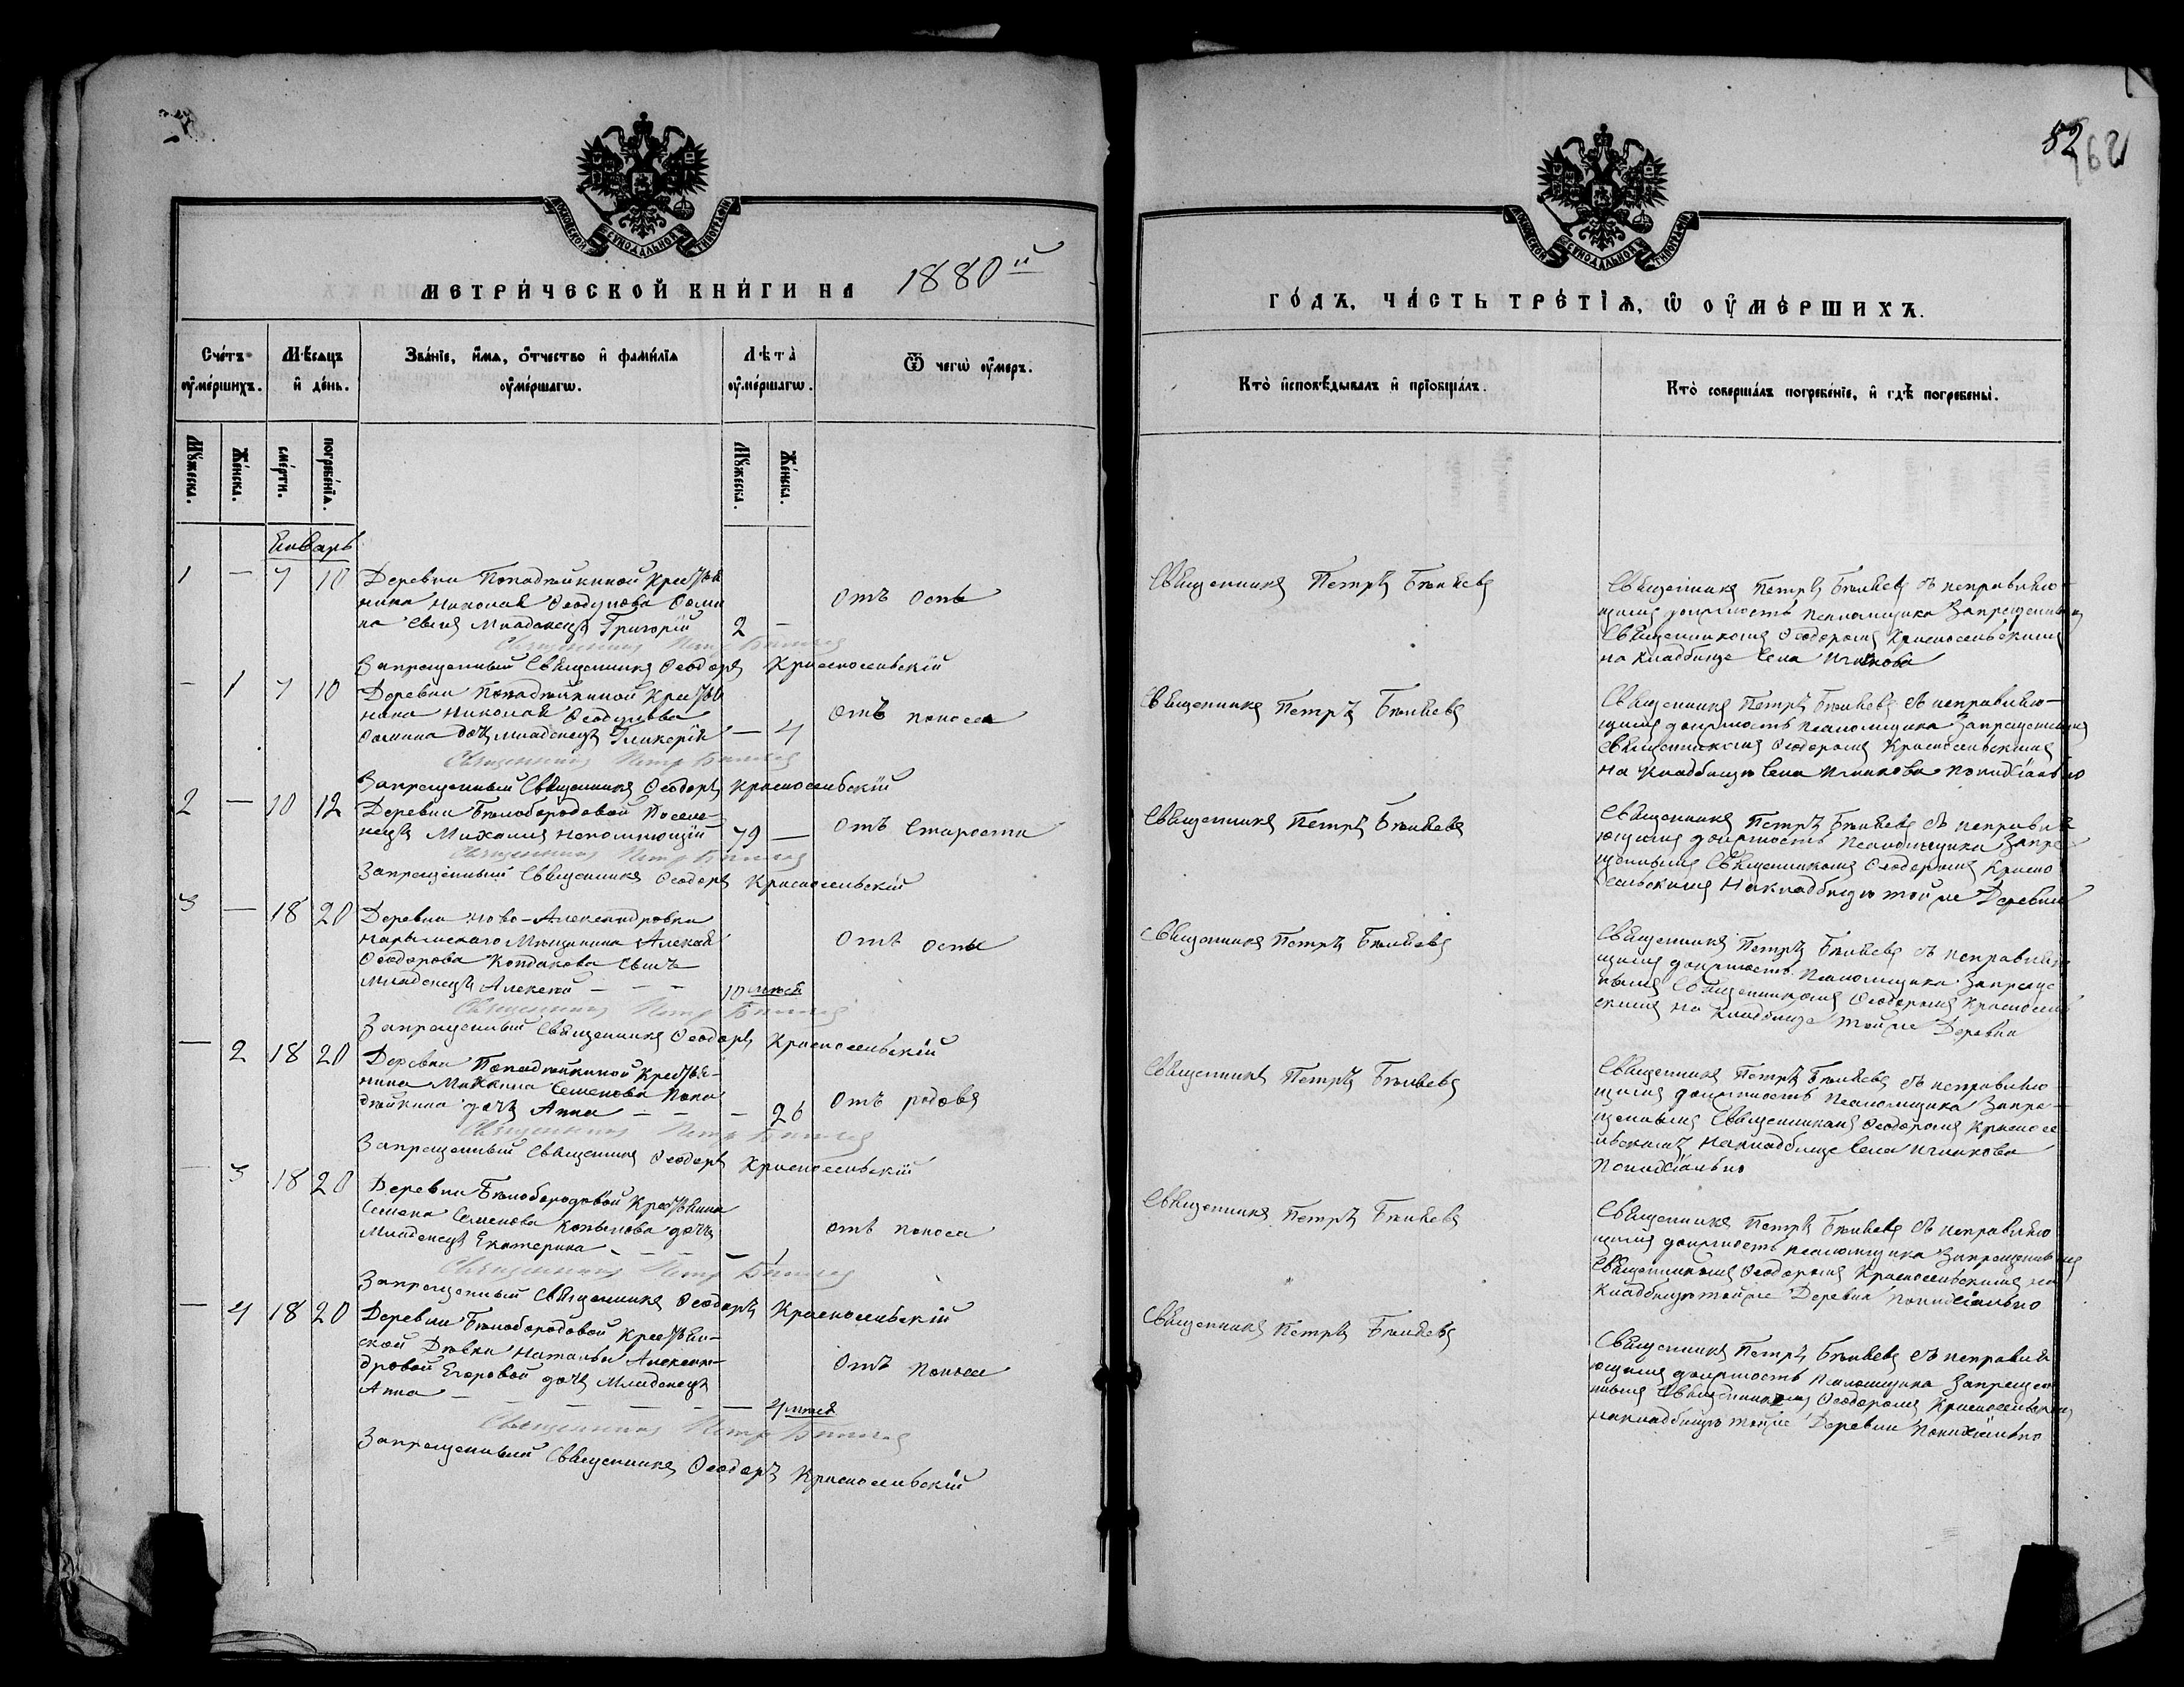 52
МОСКОВСКОЙ СѴНОДАЛЬНОЙ ТИПОГРАФІИ
МОСКОВСКОЙ СѴНОДАЛЬНОЙ ТИПОГРАФІИ
МЕТРИ́ЧЕСКОЙ КНИ́ГИ НА 1880й
ГО́ДЪ, ЧА́СТЬ ТРЕ́ТІѦ, Ѡ ОУ҆МЕ́РШИХЪ.
Сче́тъ оу҆ме́ршихъ.
Мѣ́сѧцъ и҆ де́нь.
Зва́нїе, и҆́мѧ, ѻ҆́тчество и҆ фами́лїѧ оу҆ме́ршагѡ.
Лѣта̀ оу҆ме́ршагѡ.
Ѿ чегѡ̀ оу҆́меръ.
Кто̀ и҆сповѣ́дывалъ и҆ прїобща́лъ.
Кто̀ соверша́лъ погребе́нїе, и҆ гдѣ̀ погребены̀.
Мꙋ́жеска.
Же́нска.
сме́рти.
погребе́нїѧ.
Мꙋ́жеска.
Же́нска.
Январь
1 — 7 10 Деревни Попадѣйкиной Крестья
нина Николая Ѳеодулова Ѳоми
на сынъ Младенецъ Григорій 2 —
Отъ Оспы
Священникъ Петръ Бѣляевъ
Священникъ Петръ Бѣляевъ съ исправляю
щимъ должность Псаломщика Запрещеннымъ
Священникомъ Ѳеодоромъ Красносельскимъ
на Кладбище Села
Священникъ Петръ Бѣляевъ
Запрещенный Священникъ Ѳеодоръ Красносельскій
— 1 7 10 Деревни Попадѣйкиной Крестья
нина Николая Ѳеодулова
Ѳомина дочь младенецъ Гликерія — 4
Отъ поноса
Священникъ Петръ Бѣляевъ
Священникъ Петръ Бѣляевъ съ исправляю-
щимъ должность Псаломщика Запрещеннымъ
Священникомъ Ѳеодоромъ Красносельскимъ
на Кладбищѣ Села
Священникъ Петръ Бѣляевъ
Запрещенный Священникъ Ѳеодоръ Красносельскій
2 — 10 12 Деревни Бѣлобородовой Поселе-
нецъ Михаилъ Непомнющій 79 —
Отъ Старости
Священникъ Петръ Бѣляевъ
Священникъ Петръ Бѣляевъ съ исправля
ющимъ должность Псаломщика Запре-
щеннымъ Священникомъ Ѳеодоромъ Красно
сельскимъ На кладбищѣ той же Деревни
Священникъ Петръ Бѣляевъ
Запрещенный Священникъ Ѳеодоръ Красносельскій
3 — 18 20 Деревни Ново-Александровки
Нарымскаго Мѣщанина Алексѣя
Ѳеодорова Кондакова Сынъ
Младенецъ Алексѣй — — — 10 мѣся
Отъ Оспы
Священникъ Петръ Бѣляевъ
Священникъ Петръ Бѣляевъ съ исправляю
щимъ должность Псаломщика Запреще
ннымъ Священникомъ Ѳеодоромъ Красносель
скимъ на Кладбище той же Деревни
Священникъ Петръ Бѣляевъ
Запрещенный Священникъ Ѳеодоръ Красносельскій
— 2 18 20 Деревни Попадѣйкиной Крестья-
нина Михаила Семенова Попа
дѣйкина дочь Анна — — — 26
Отъ родовъ
Священникъ Петръ Бѣляевъ
Священникъ Петръ Бѣляевъ съ исправляю
щимъ должность Псаломщика Запре-
щеннымъ Священникомъ Ѳеодоромъ Красносе
льскимъ На кладбище Села
Священникъ Петръ Бѣляевъ
Запрещенный Священникъ Ѳеодоръ Красносельскій
— 3 18 20 Деревни Бѣлобородовой Крестьянина
Семена Семенова Копылова дочь
Младенецъ Екатерина — — — — 1
Отъ поноса
Священникъ Петръ Бѣляевъ
Священникъ Петръ Бѣляевъ съ исправляю
щимъ должность псаломщика Запрещеннымъ
Священникомъ Ѳеодоромъ Красносельскимъ на
Кладбищѣ той же Деревни
Священникъ Петръ Бѣляевъ
Запрещенный Священникъ Ѳеодоръ Красносельскій
— 4 18 20 Деревни Бѣлобородовой Крестьян-
ской Дѣвки Натальи Алексан-
дровой Егоровой дочь Младенецъ
Анна — — — — — — 4 мѣся
Отъ Поноса
Священникъ Петръ Бѣляевъ
Священникъ Петръ Бѣляевъ съ исправля
ющимъ должность Псаломщика Запрещен
ннымъ Священникомъ Ѳеодоромъ Красносельскимъ
на кладбищѣ той же Деревни
Священникъ Петръ Бѣляевъ
Запрещенный Священникъ Ѳеодоръ Красносельскій